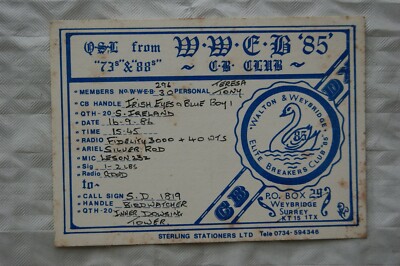 QSL from W·W·E·B '85'
"73s" & "88s" ~ C·B CLUB ~
296 TERESA
MEMBERS No W·W·E·B 30 PERSONAL TONY
CB HANDLE IRISH EYES + BLUE BOY 1
QTH-20 S. IRELAND
DATE 16-9-86
TIME 15-45
RADIO FIDELITY 3000 + 40 WTS
ARIEL SILVER ROD
MIC LESON 232
Sig 1-2 LBS
Radio ROAD
to~
CALL SIGN S.D. 1819
HANDLE BIRDWATCHER
QTH-20 INNER DOWSING
TOWER
WALTON & WEYBRIDGE
85
ELITE BREAKERS CLUB '85'
GB
P.O. BOX 29
WEYBRIDGE
SURREY
KT15 1TX
STERLING STATIONERS LTD Tele 0734-594346